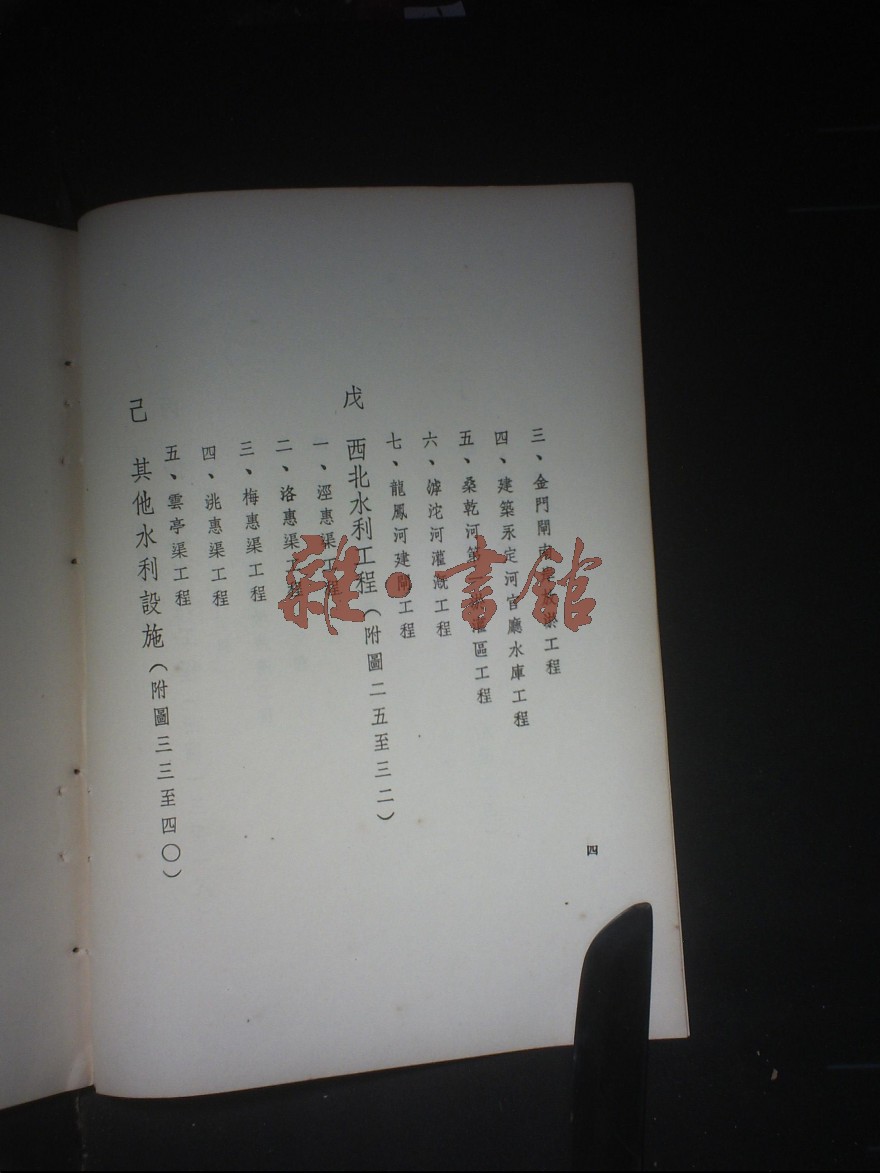 三、金門閘南 放淤工程
四、建築永定河官廳水庫工程
五、桑乾河第 淤灌區工程
六、滹沱河灌溉工程
七、龍鳳河建閘工程
戊 西北水利工程(附圖二五至三二)
一、涇惠渠工程
二、洛惠渠工程
三、梅惠渠工程
四、洮惠渠工程
五、雲亭渠工程
己 其他水利設施(附圖三三至四〇)
四
雜·書館